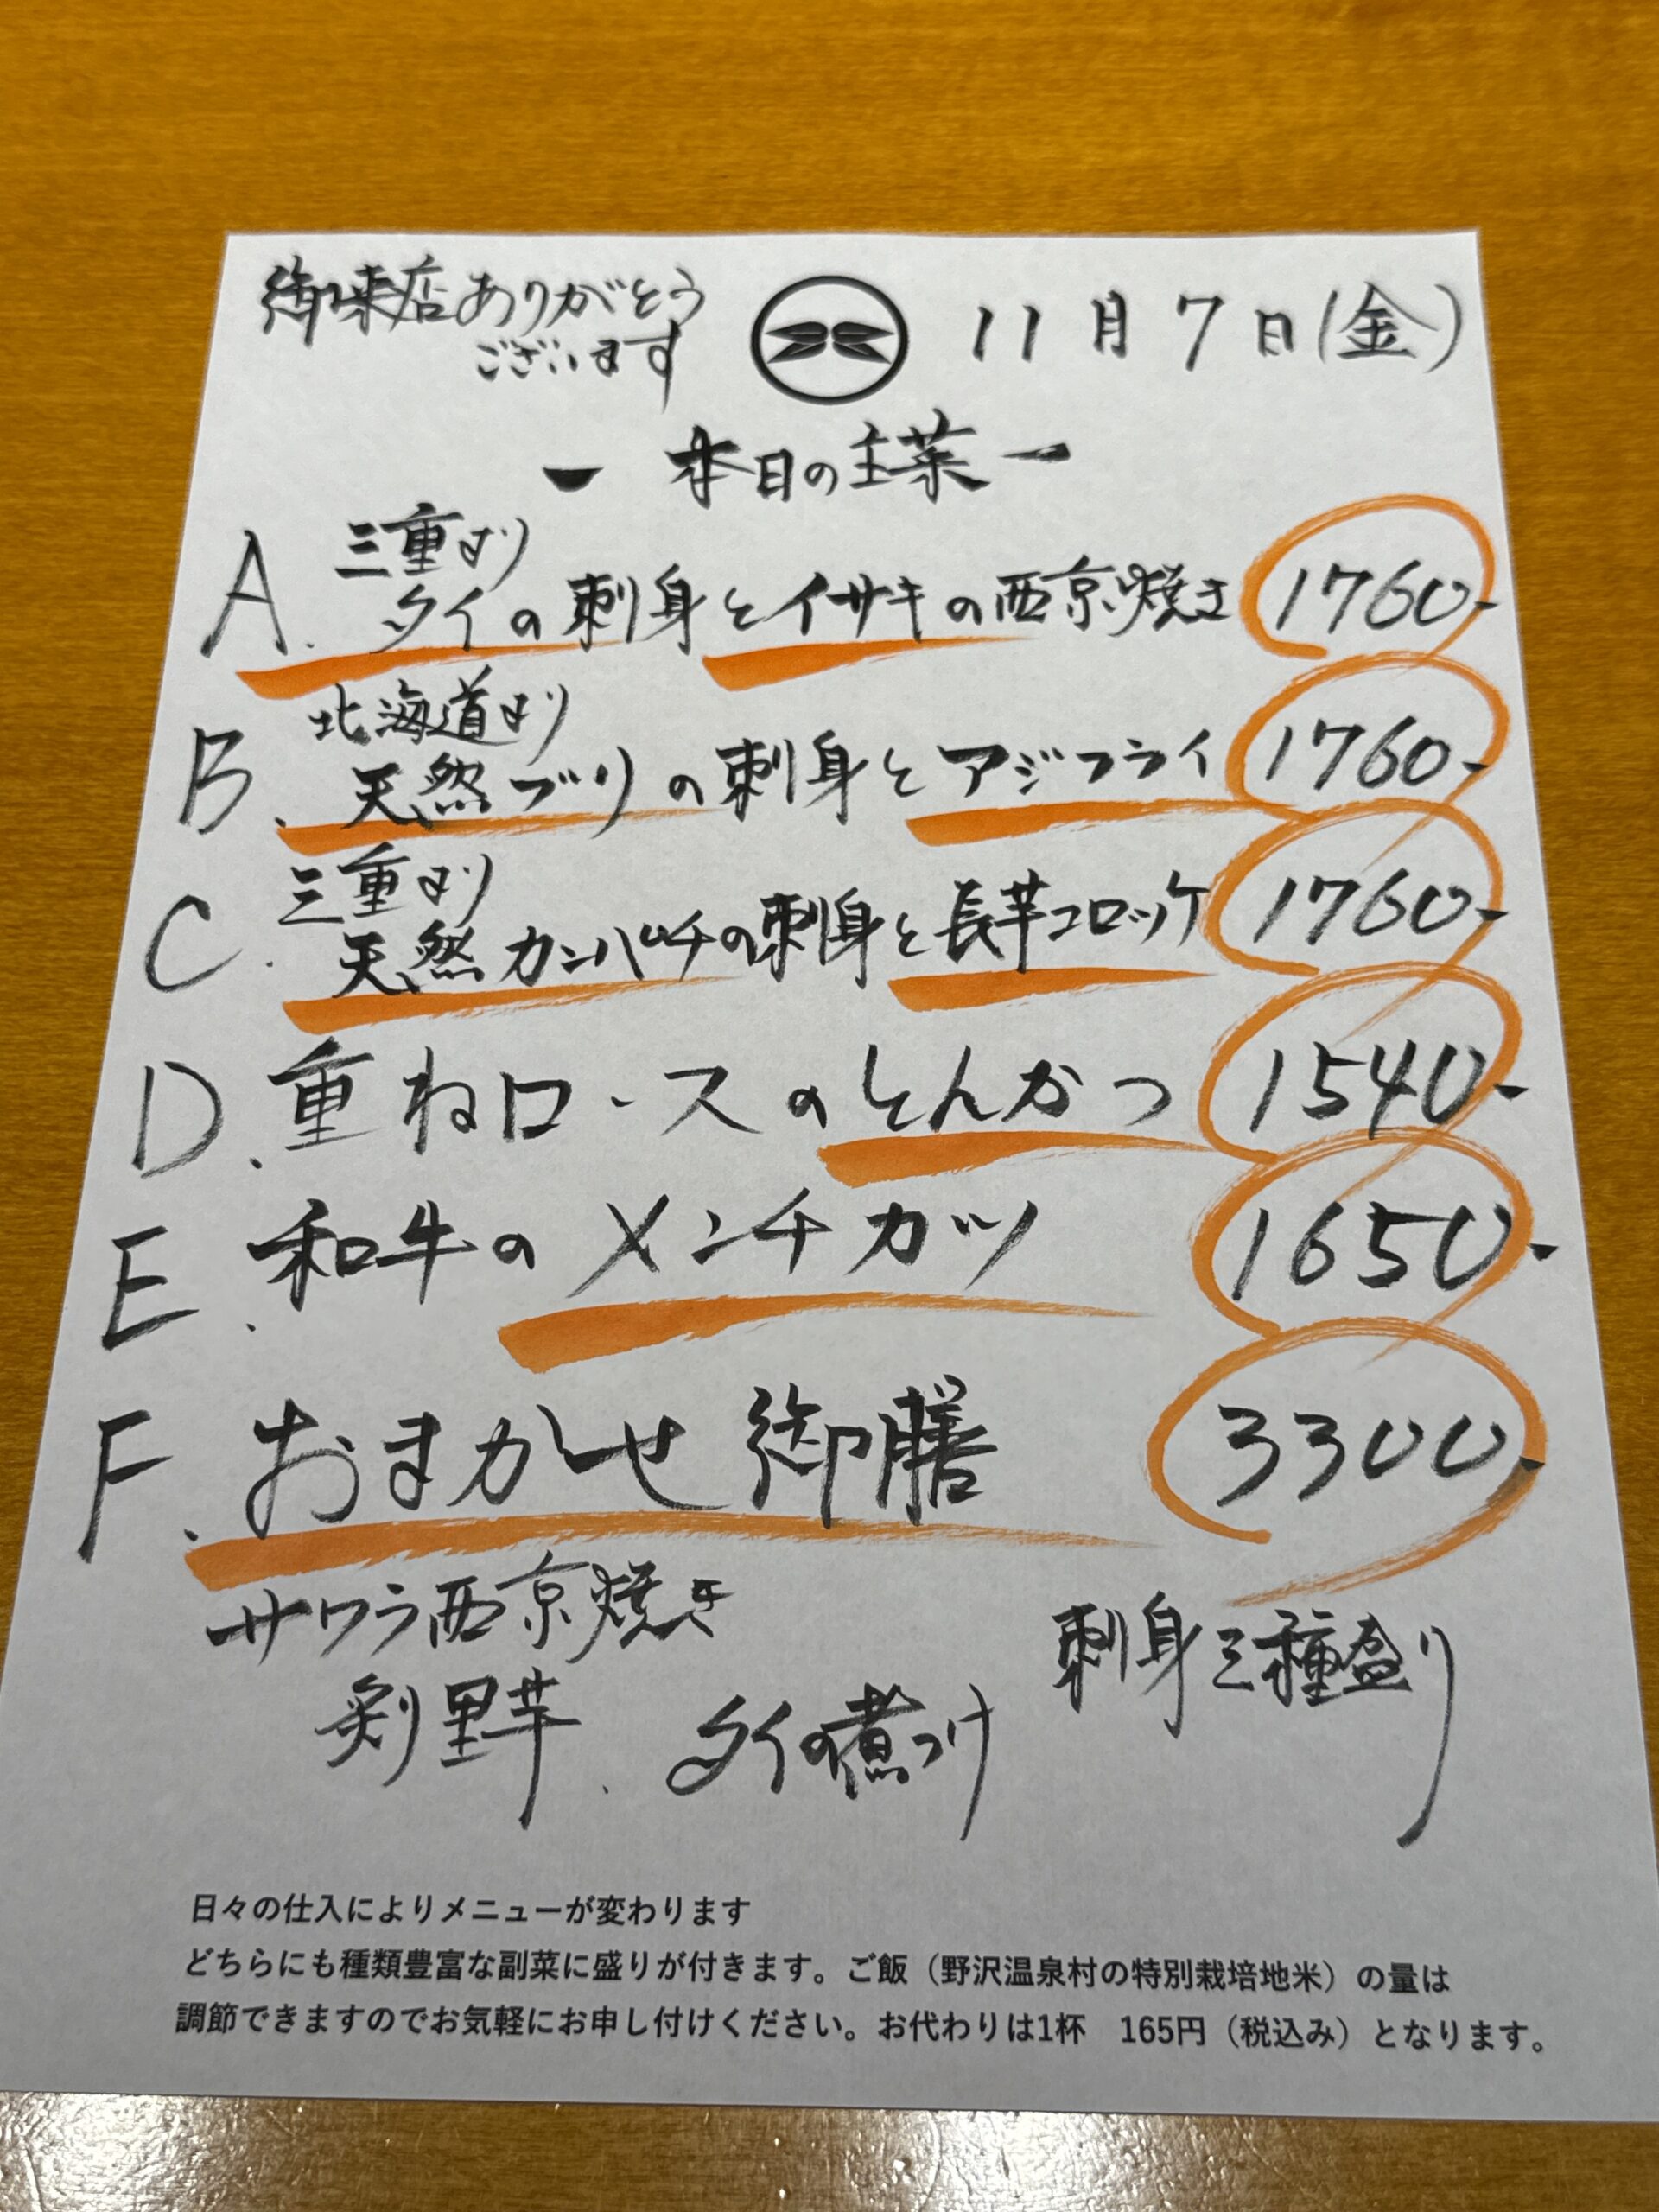 御来店ありがとう
ございます
11月7日(金)
ー 本日の主菜 ー
A. 三重より
タイの刺身とイサキの西京焼き 1760-
B. 北海道より
天然ブリの刺身とアジフライ 1760-
C. 三重より
天然カンパチの刺身と長芋コロッケ 1760-
D. 重ねロースのとんかつ 1540-
E. 和牛のメンチカツ 1650-
F. おまかせ御膳 3300-
サワラ西京焼き
刺身三種盛り
里芋、タイの煮つけ
日々の仕入によりメニューが変わります
どちらにも種類豊富な副菜に盛りが付きます。ご飯（野沢温泉村の特別栽培地米）の量は
調節できますのでお気軽にお申し付けください。お代わりは1杯 165円（税込み）となります。